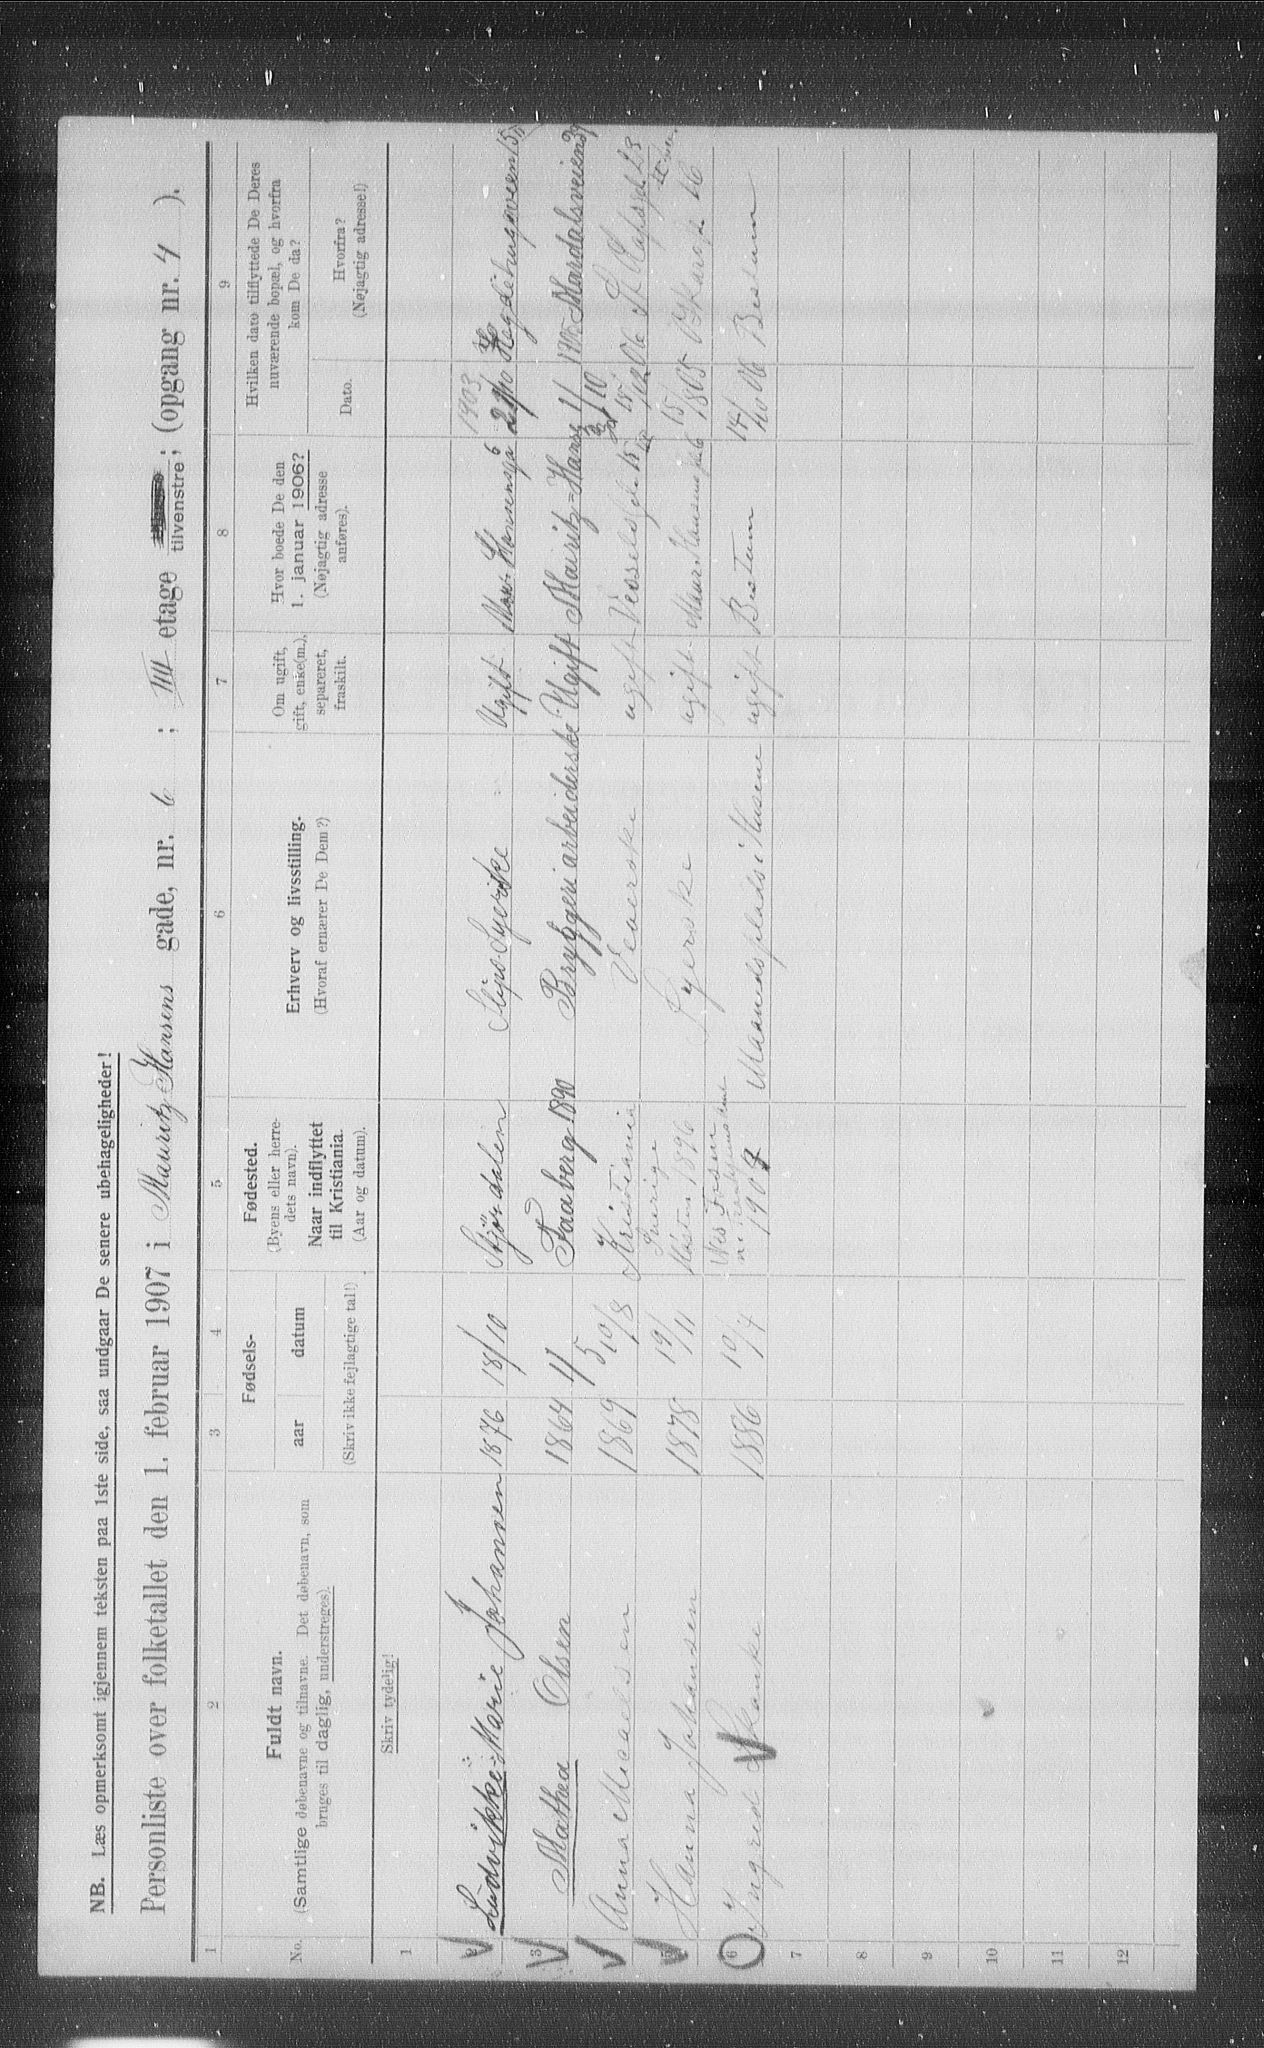 NB. Læs opmerksomt igjennem teksten paa 1ste side, saa undgaar De senere ubehageligheder!
Personliste over folketallet den 1. februar 1907 i Mauritz Hansens gade, nr. 6; III etage tilvenstre; (opgang nr. 4).
1 2 3 4 5 6 7 8 9
No.
Fuldt navn.
(Samtlige døbenavne og tilnavne. Det døbenavn, som
bruges til daglig, understreges).
Fødsels-
aar datum
(Skriv ikke fejlagtige tal!)
Fødested.
(Byens eller herre-
dets navn).
Naar indflyttet
til Kristiania.
(Aar og datum).
Erhverv og livsstilling.
(Hvoraf ernærer De Dem?)
Om ugift,
gift, enke(m.),
separeret,
fraskilt.
Hvor boede De den
1. januar 1906?
(Nøjagtig adresse
anføres).
Hvilken dato tilflyttede De Deres
nuværende bopæl, og hvorfra
kom De da?
Dato.
Hvorfra?
(Nøjagtig adresse!)
Skriv tydelig!
1
2 Ludvikke Marie Johansen 1876 18/10 Stjørdalen Slips Syerske Ugift Mau. Hansensga 6 1903 Hegdehaugsveien
3 Mathea Olsen 1864 1/5 Faaberg 1890 Bryggeriarbeiderske Ugift Mauritz Hansg Mardalsveien
Anna Micaelson 1869 10/8 Kristiania Veverske ugift Vessels
5 Hanna Johansen 1878 19/11 Sverige Høsten 1896 Syerske ugift Maur. Hansens 6 15/
6 Ingred Skanke 1886 10/4 Maanedsplads i Husene ugift Bestum 14/ 06 Bestum
7
8
9
10
11
12